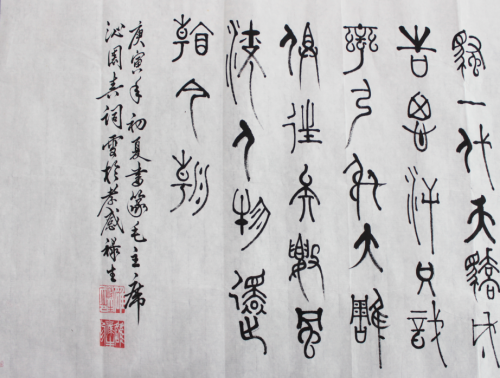 騷一代天驕成
吉思汗只識
彎弓射大雕
俱往矣數風
流人物還
看今朝
庚寅年初夏書篆毛主席
沁園春詞雪於孝感